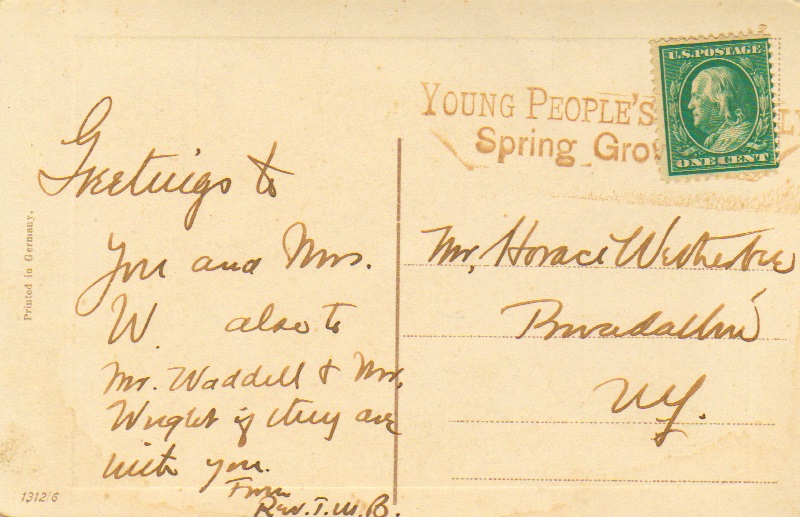 U.S. POSTAGE
ONE CENT
YOUNG PEOPLE'S
Spring Gro
Greetings to
you and Mrs.
W. also to
Mr. Waddell & Mr.
Wright if they are
with you.
From
Rev. T. W. B.
Mr, Horace Wetherbee
Broadalbin
NY.
Printed in Germany.
13126